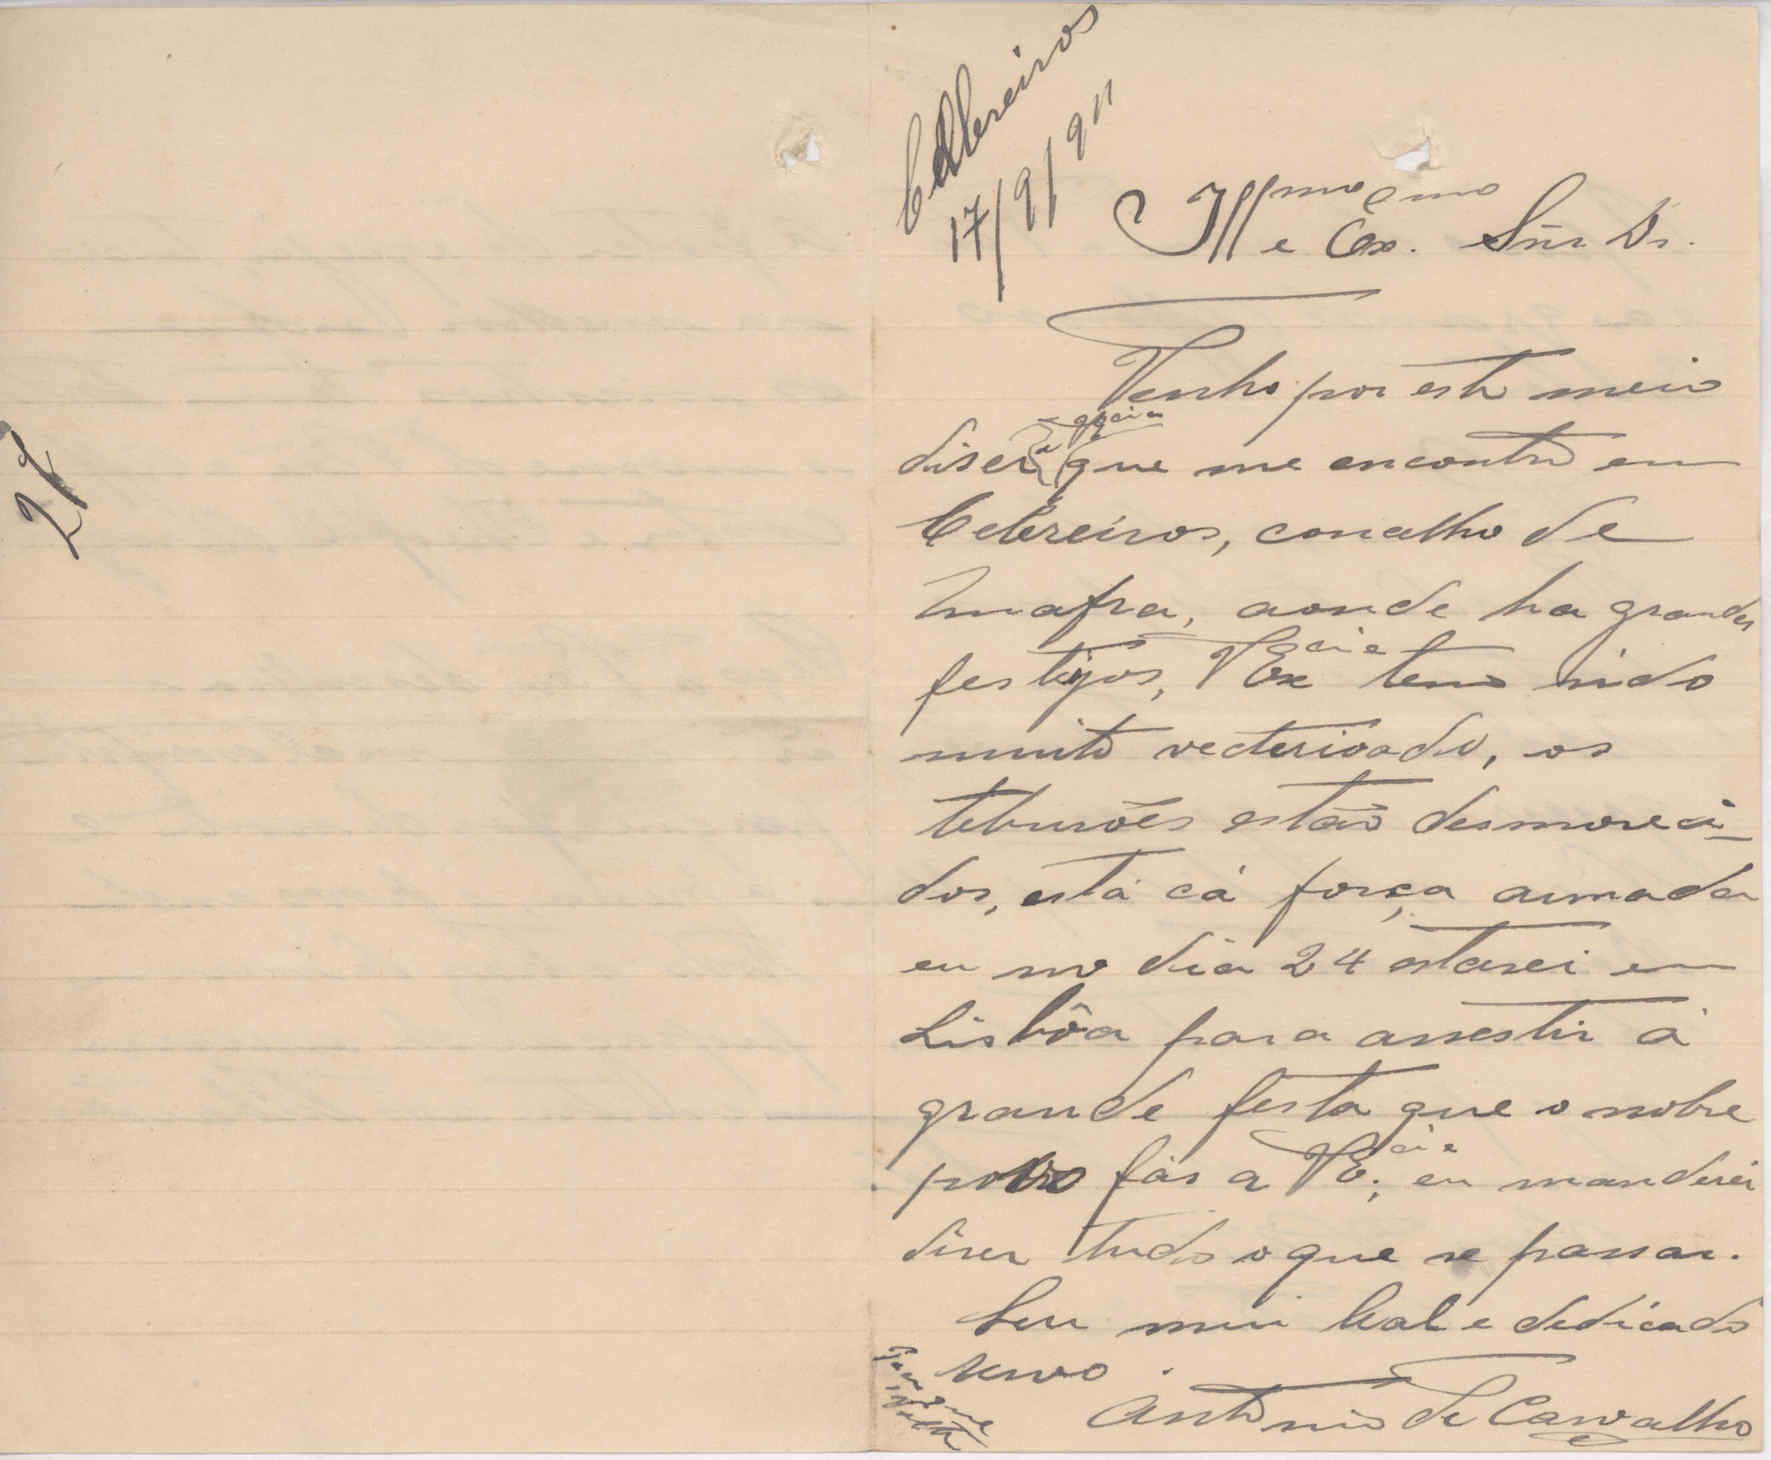 27
Celbreiros
17/9/911
Illmo e Exmo. Snr Dr.
Venho por este meio
diser a que me encontro em
Celbreiros, concelho de
Mafra, aonde ha grandes
festijos, V Excia tem sido
muito vecturioado, os
teburões estão desmoreci-
dos, está cá força armada
eu no dia 24 estarei em
Lisbôa para assestir á
grande festa que o nobre
povo fás a V Ecia; eu manderei
diser tudo o que se passar.
Seu mui leal e dedicado
servo.
Antonio de Carvalho